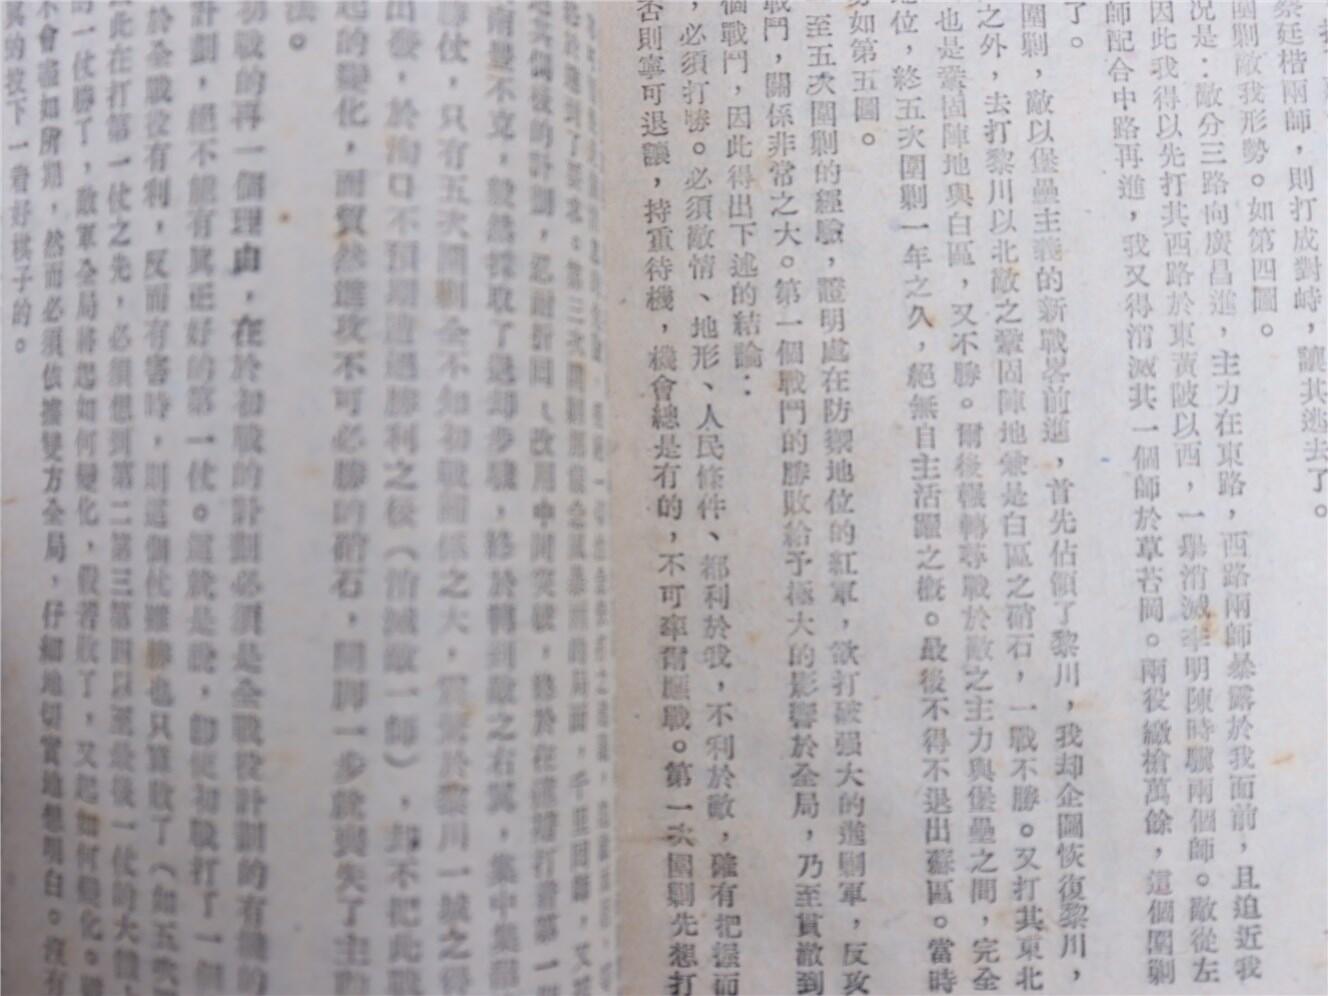 蔡廷楷兩師，則打成對峙，讓其逃去了。
圍剿敵我形勢。如第四圖。
況是：敵分三路向廣昌進，主力在東路，西路兩師暴露於我面前，且迫近我
因此我得以先打其西路於東黃陂以西，一舉消滅李明陳時驥兩個師。敵從左
師配合中路再進，我又得消滅其一個師於草苔岡。兩役繳槍萬餘，這個圍剿
了。
圍剿，敵以堡壘主義的新戰畧前進，首先佔領了黎川，我却企圖恢復黎川，
之外，去打黎川以北敵之鞏固陣地兼是白區之硝石，一戰不勝。又打其東北
也是鞏固陣地與白區，又不勝。爾後輾轉尋戰於敵之主力與堡壘之間，完全
地位，終五次圍剿一年之久，絕無自主活躍之概。最後不得不退出蘇區。當時
如第五圖。
至五次圍剿的經驗，證明處在防禦地位的紅軍，欲打破强大的進剿軍，反攻
戰鬥，關係非常之大。第一個戰鬥的勝敗給予極大的影響於全局，乃至貫澈到
個戰鬥，因此得出下述的結論：
，必須打勝。必須敵情、地形、人民條件、都利於我，不利於敵，確有把握而
否則寧可退讓，持重待機，機會總是有的，不可率爾應戰。第一次圍剿先想打
南豐不克，毅然採取了退却步驟，終於轉到敵之右翼，集中
勝仗，只有五次圍剿全不知初戰關係之大，震驚於黎川一城之得
出發，於洵口不預期遭遇勝利之後（消滅敵一師），却不把此戰
起的變化，而貿然進攻不可必勝的硝石，開脚一步就喪失了主動
法。
初戰的再一個理由，在於初戰的計劃必須是全戰役計劃的有機的
計劃，絕不能有眞正好的第一仗。這就是說，卽使初戰打了一個
於全戰役有利，反而有害時，則這個仗雖勝也只算敗了（如五次
此在打第一仗之先，必須想到第二第三第四以至最後一仗的大體
的一仗勝了，敵軍全局將起如何變化，假若敗了，又起如何變化。
不會盡如所期，然而必須依據雙方全局，仔細地切實地想明白。沒有
眞的投下一着好棋子的。